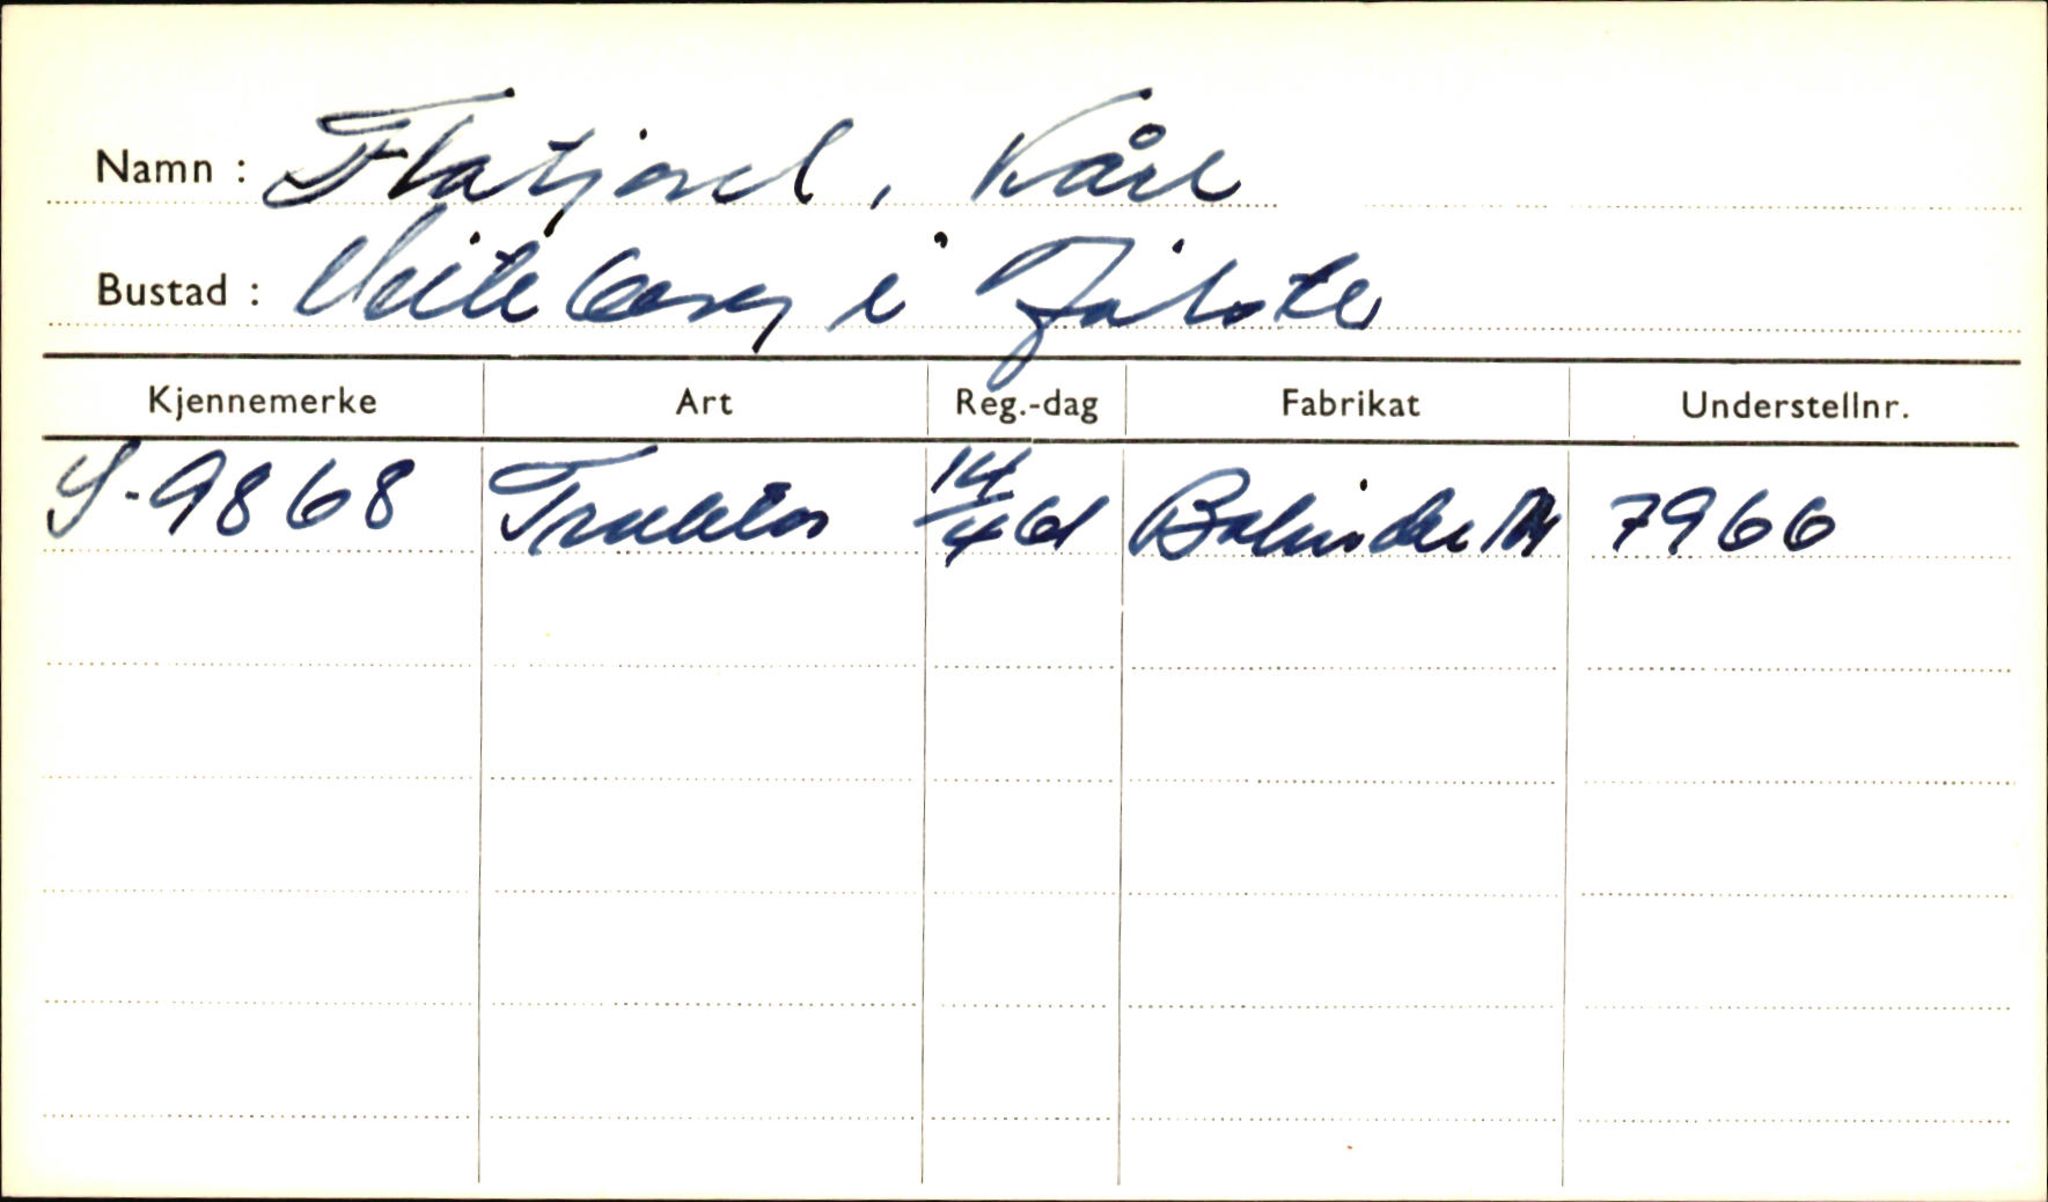 Namn : Flatjord, Kåre
Bustad : Veiteberg i Jølster
Kjennemerke Art Reg.-dag Fabrikat Understellnr.
S-9868 Traktor 14/4 61 Bolinder M 7966